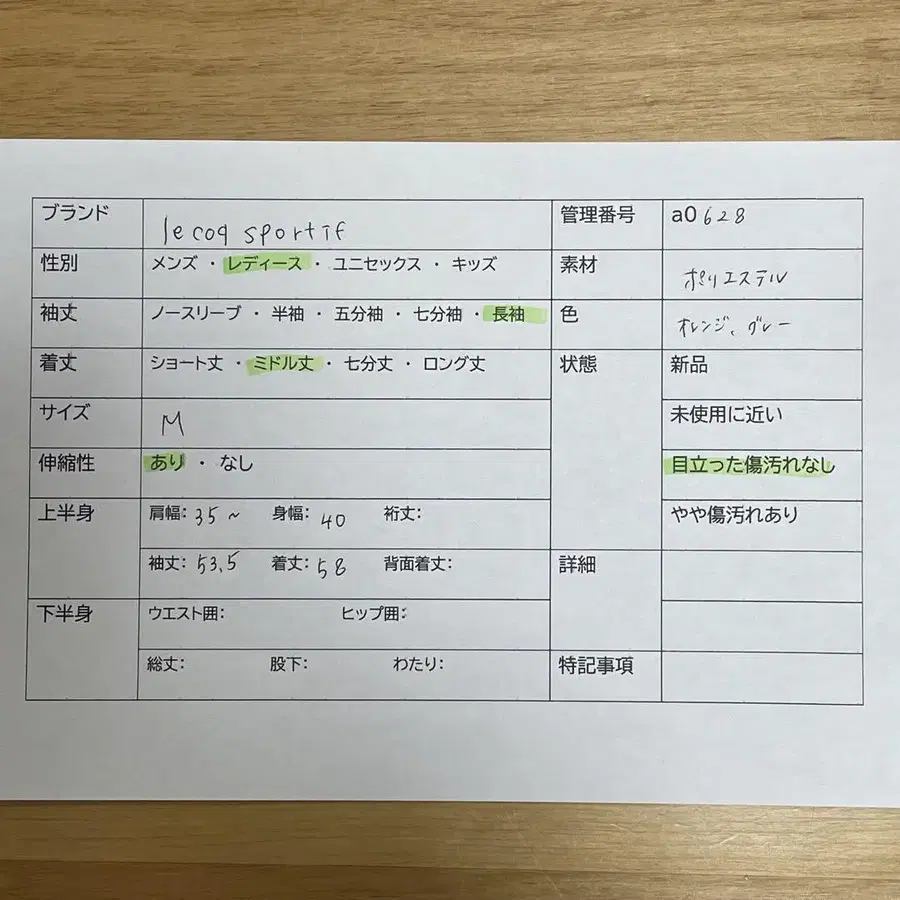 ブランド lecoq sportif 管理番号 a0628
性別 メンズ ・ レディース ・ ユニセックス ・ キッズ 素材 ポリエステル
袖丈 ノースリーブ ・ 半袖 ・ 五分袖 ・ 七分袖 ・ 長袖 色 オレンジ、グレー
着丈 ショート丈 ・ ミドル丈 ・ 七分丈 ・ ロング丈 状態 新品
サイズ M 未使用に近い
伸縮性 あり ・ なし 目立った傷汚れなし
上半身 肩幅: 35~ 身幅: 40 裄丈: やや傷汚れあり
袖丈: 53.5 着丈: 58 背面着丈: 詳細
下半身 ウエスト囲: ヒップ囲:
総丈: 股下: わたり: 特記事項